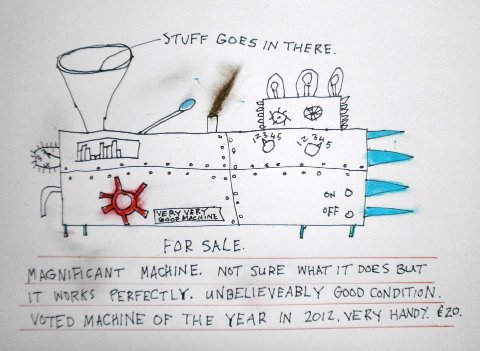 STUFF GOES IN THERE.
12345
12345
VERY VERY
GOOD MACHINE
ON
OFF
FOR SALE.
MAGNIFICANT MACHINE. NOT SURE WHAT IT DOES BUT
IT WORKS PERFECTLY. UNBELIEVEABLY GOOD CONDITION.
VOTED MACHINE OF THE YEAR IN 2012. VERY HANDY. €20.